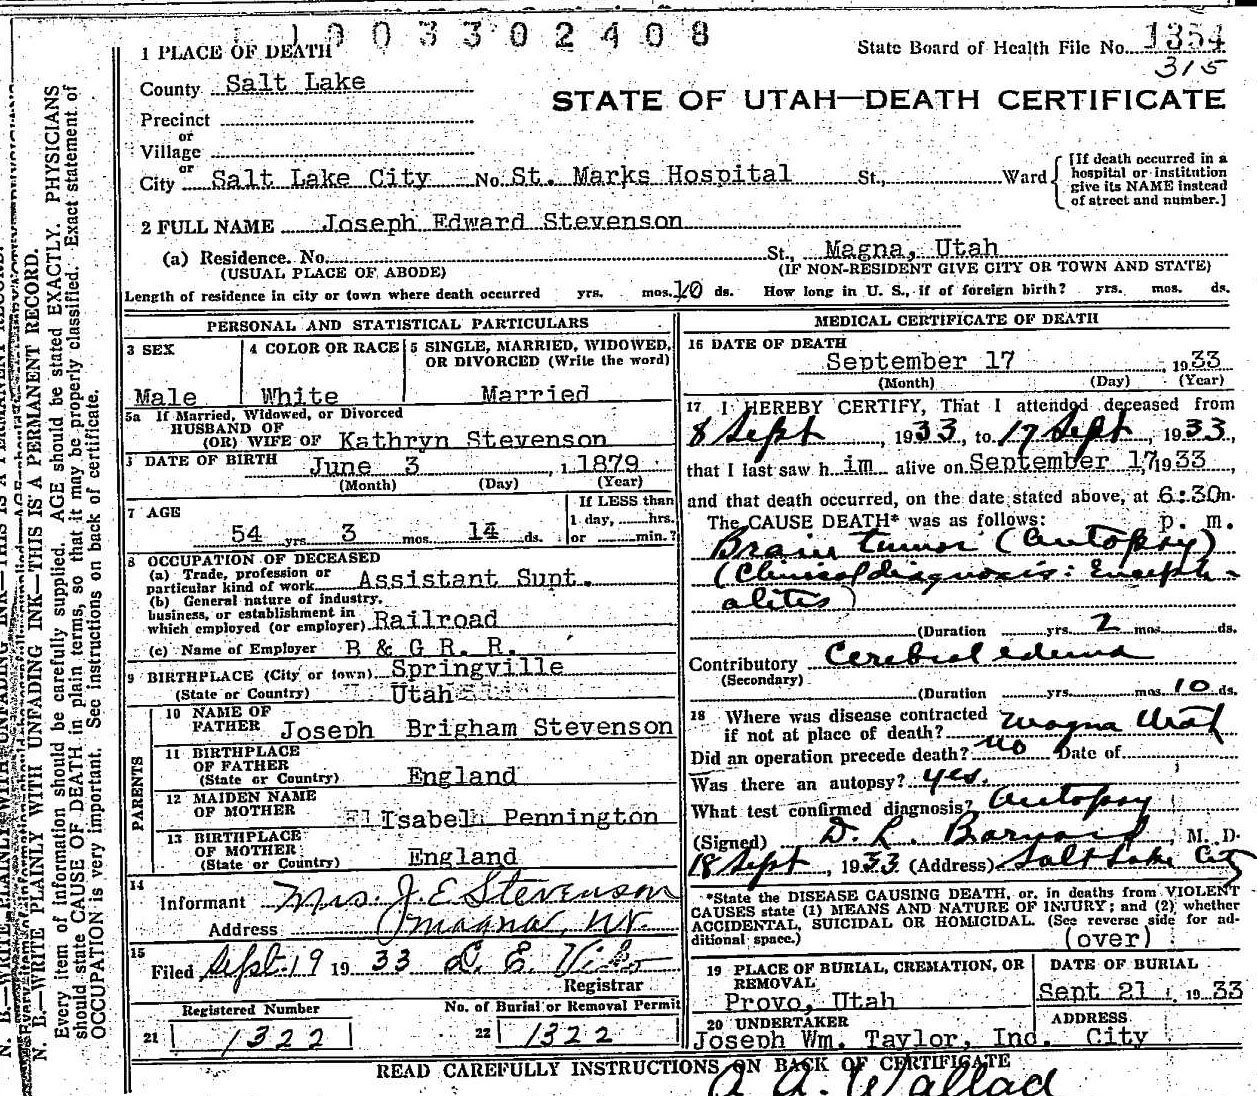 1003302408
1 PLACE OF DEATH
State Board of Health File No. 1354
315
County Salt Lake
STATE OF UTAH—DEATH CERTIFICATE
Precinct
or
Village
or
City Salt Lake City No. St. Marks Hospital St., Ward
[If death occurred in a
hospital or institution
give its NAME instead
of street and number.]
2 FULL NAME Joseph Edward Stevenson
(a) Residence. No. St., Magna, Utah
(USUAL PLACE OF ABODE) (IF NON-RESIDENT GIVE CITY OR TOWN AND STATE)
Length of residence in city or town where death occurred yrs. mos. 10 ds. How long in U. S., if of foreign birth? yrs. mos. ds.
PERSONAL AND STATISTICAL PARTICULARS
3 SEX 4 COLOR OR RACE 5 SINGLE, MARRIED, WIDOWED,
OR DIVORCED (Write the word)
Male White Married
5a If Married, Widowed, or Divorced
HUSBAND OF
(OR) WIFE OF Kathryn Stevenson
DATE OF BIRTH June 3, 1879
(Month) (Day) (Year)
7 AGE
If LESS than
1 day, hrs.
54 yrs 3 mos. 14 ds. or min.?
8 OCCUPATION OF DECEASED
(a) Trade, profession or
particular kind of work Assistant Supt.
(b) General nature of industry,
business, or establishment in
which employed (or employer) Railroad
(c) Name of Employer B & G R. R.
9 BIRTHPLACE (City or town) Springville
(State or Country) Utah
PARENTS
10 NAME OF
FATHER Joseph Brigham Stevenson
11 BIRTHPLACE
OF FATHER
(State or Country) England
12 MAIDEN NAME
OF MOTHER Isabell Pennington
13 BIRTHPLACE
OF MOTHER
(State or Country) England
14
Informant Mrs. J. E. Stevenson
Address Magna, Ut.
15
Filed Sept. 19 1933 L. E.
Registrar
Registered Number No. of Burial or Removal Permit
21 1322 22 1322
MEDICAL CERTIFICATE OF DEATH
16 DATE OF DEATH
September 17, 1933
(Month) (Day) (Year)
17 I HEREBY CERTIFY, That I attended deceased from
8 Sept, 1933, to 17 Sept, 1933,
that I last saw him alive on September 17, 1933,
and that death occurred, on the date stated above, at 6:30 m.
The CAUSE DEATH* was as follows: p. m.
Brain tumor (autopsy)
(Clinical diagnosis: Enceph-
alitis)
(Duration yrs. 2 mos ds.
Contributory Cerebral edema
(Secondary)
(Duration yrs. mos. 10 ds.
18 Where was disease contracted
if not at place of death? Magna Utah
Did an operation precede death? no Date of
Was there an autopsy? yes.
What test confirmed diagnosis? Autopsy
(Signed) D. L. Barnard, M. D.
18 Sept, 1933 (Address) Salt Lake City
*State the DISEASE CAUSING DEATH, or, in deaths from VIOLENT
CAUSES state (1) MEANS AND NATURE OF INJURY; and (2) whether
ACCIDENTAL, SUICIDAL OR HOMICIDAL. (See reverse side for ad-
ditional space.) (over)
19 PLACE OF BURIAL, CREMATION, OR
REMOVAL
Provo, Utah
DATE OF BURIAL
Sept 21, 1933
20 UNDERTAKER
Joseph Wm. Taylor, Inc.
ADDRESS
City
READ CAREFULLY INSTRUCTIONS ON BACK OF CERTIFICATE
N. B.—WRITE PLAINLY WITH UNFADING INK—THIS IS A PERMANENT RECORD.
Every item of information should be carefully supplied. AGE should be stated EXACTLY. PHYSICIANS
should state CAUSE OF DEATH in plain terms, so that it may be properly classified. Exact statement of
OCCUPATION is very important. See instructions on back of certificate.